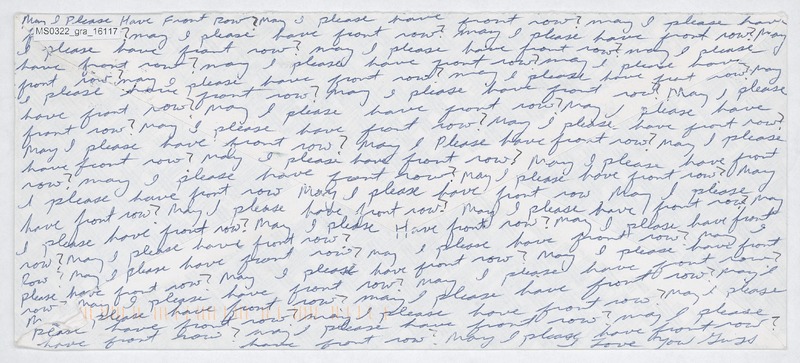 May I Please Have Front Row? May I please have front row? may I please have
MS0322_gra_16117
? may I please have front row? may I please have front row? May
I please have front row? may I please have front row? may I please
have front row? may I please have front row? may I please have
front row? may I please have front row? may I please have front row? may
I please have front row? May I please have front row? May I please
have front row? May I please have front row? May I please have
front row? May I please have front row? May I please have front row?
May I please have front row? May I Please have front row? May I please
have front row? May I please have front row? May I please have front
row? may I please have front row? May I please have front row? May
I please have front row May I please have front row May I please
have front row? May I please have front row? May I please have front row? may
I please have front row? May I please Have front row? May I please have front
row? May I please have front row? may I please have front row? May I
Row? May I please have front row? May I please have front
please have front row? May I please have front row? May I please have front row?
row May I please have front row? may I please have front row? may I
M please have front row? may I please have front row? May I please
please have front row? may I please have front row? may I please
have front row? have front row? May I please Love You Guss